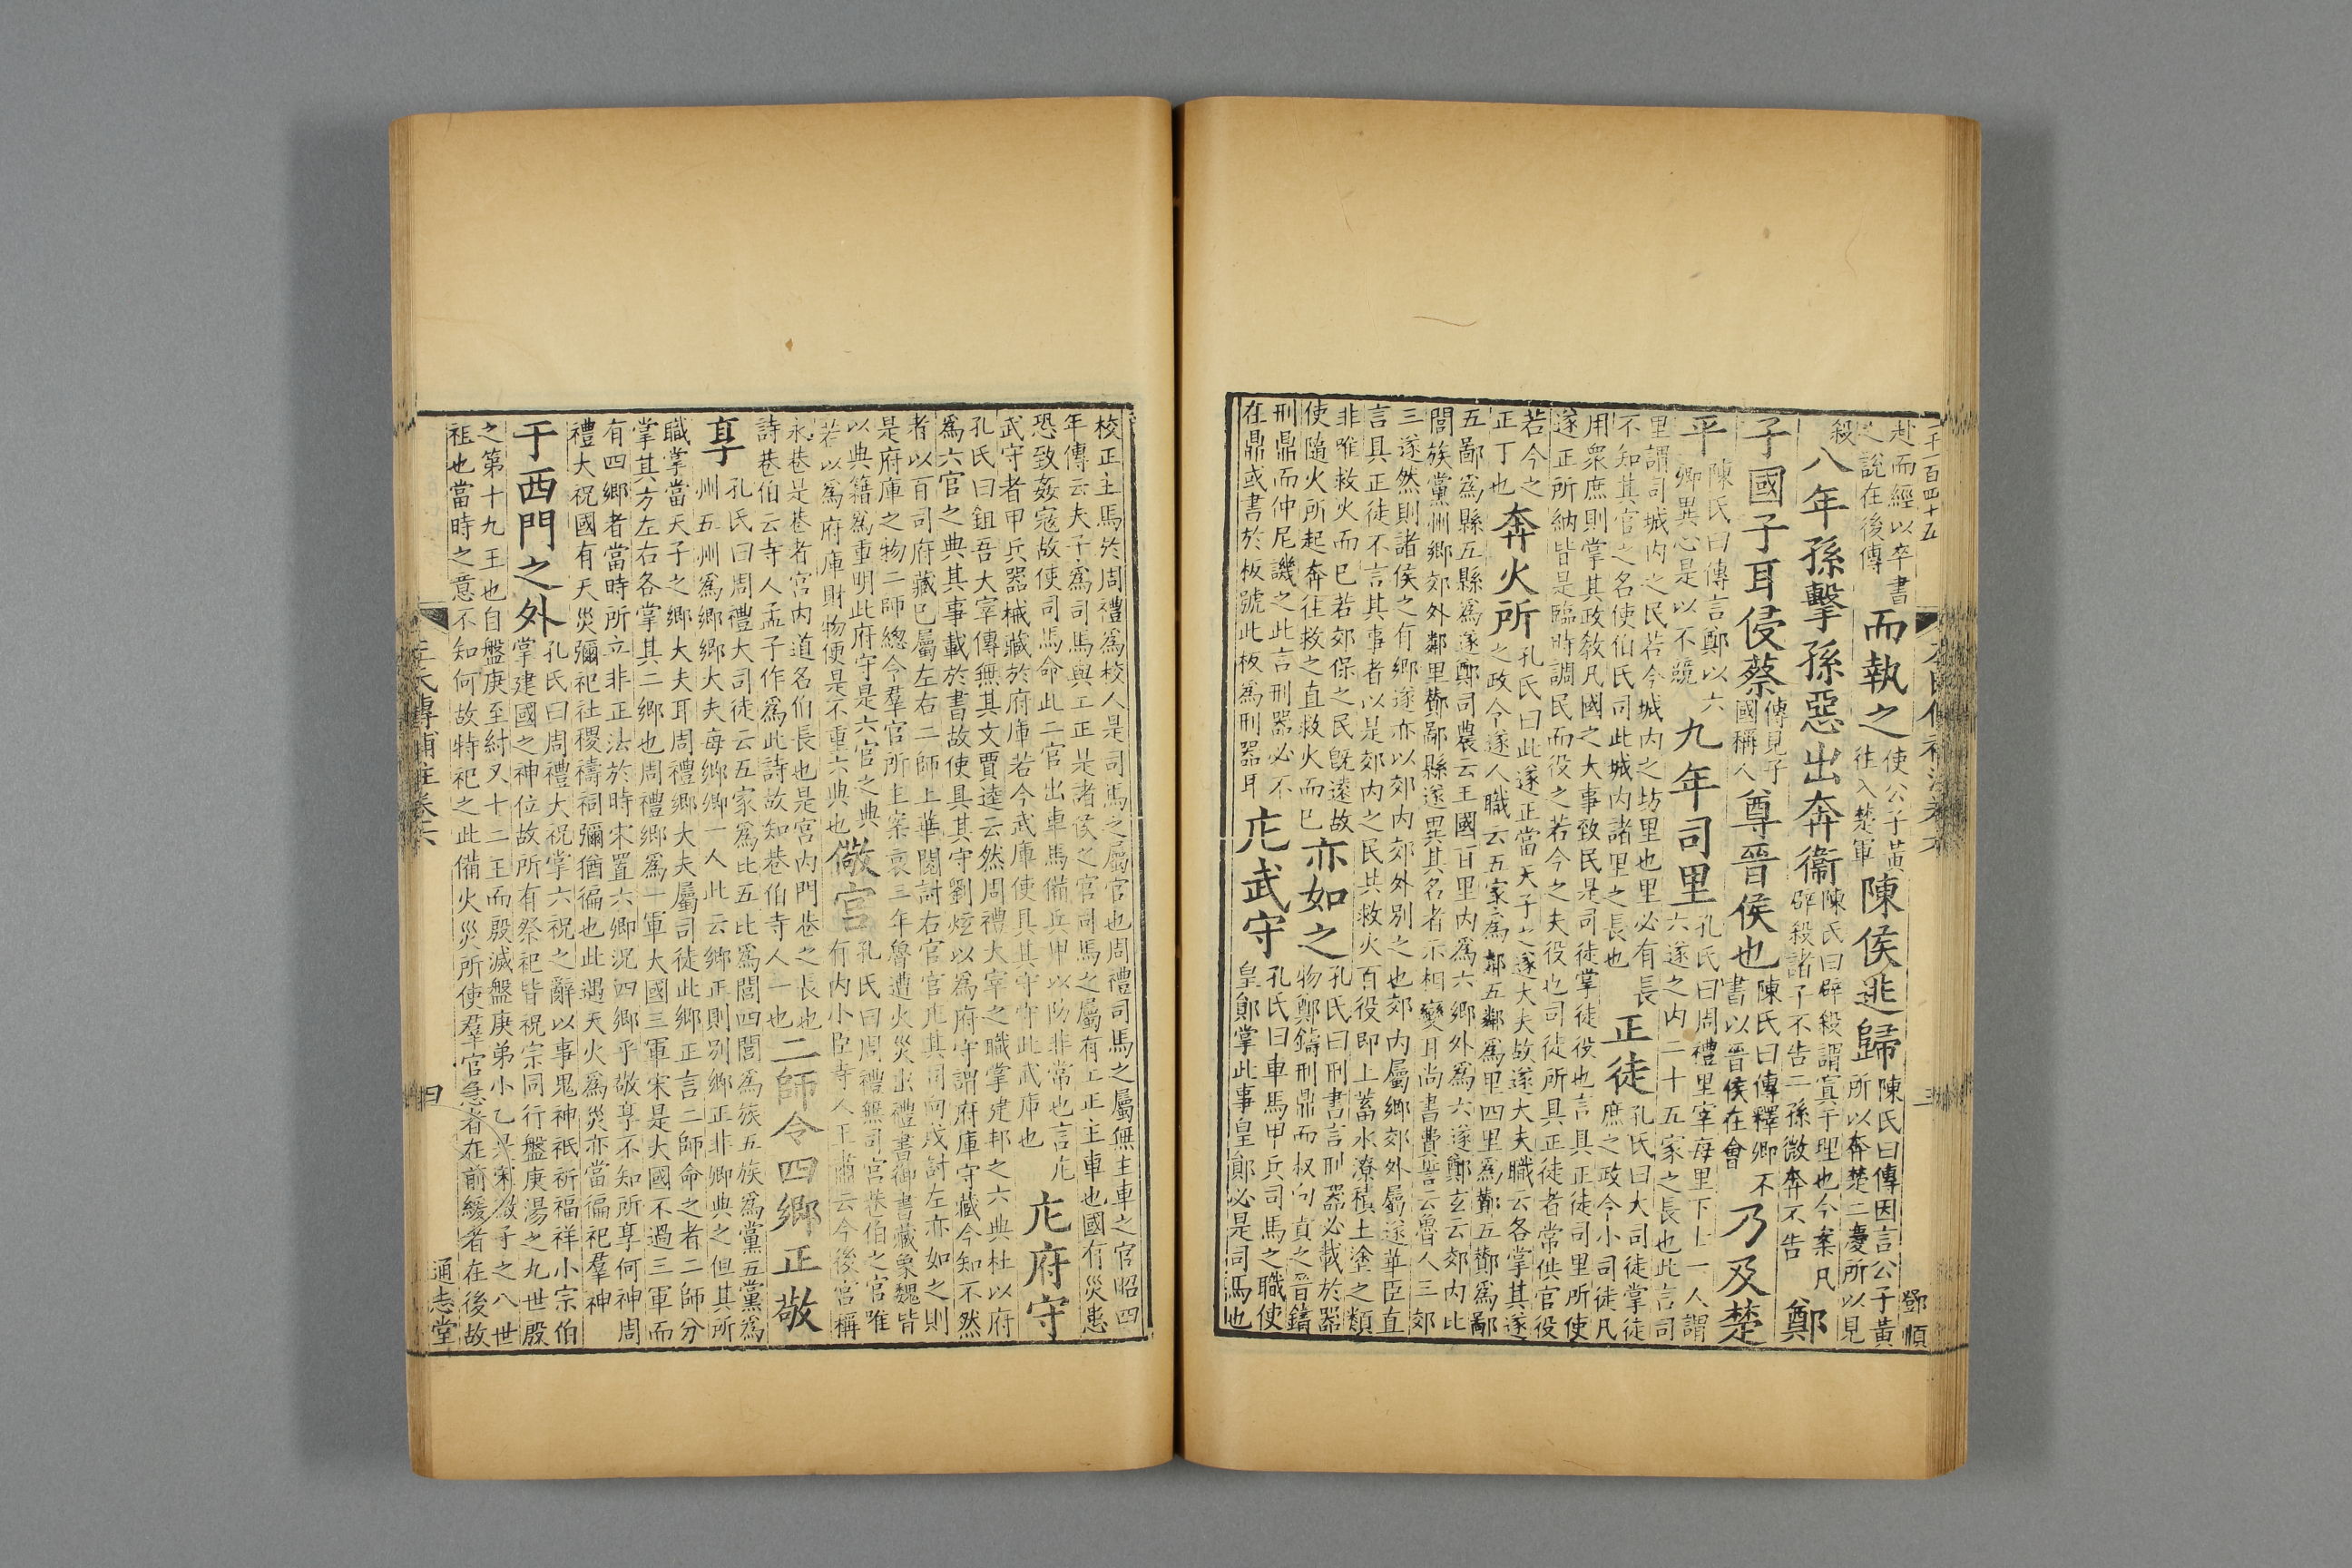 二千百四十五
鄧順
赴而經以卒書之說在後傳而執之使公子黃往入楚軍陳侯逃歸陳氏曰傳因言公子黃所以奔楚二慶所以見
殺八年孫擊孫惡出奔衞陳氏曰辟殺謂寘于理也今案凡辟殺諸子不告二孫微奔不告鄭
子國子耳侵蔡傳見子國稱人尊晉侯也陳氏曰傳釋卿不書以晉侯在會乃及楚
平陳氏曰傳言鄭以六卿異心是以不競九年司里孔氏曰周禮里宰每里下士一人謂六遂之內二十五家之長也此言司
里謂司城內之民若今城內之坊里也里必有長不知其官之名使伯氏司此城內諸里之長也正徒孔氏曰大司徒掌徒庶之政令小司徒凡
用衆庶則掌其政敎凡國之大事致民是司徒掌徒役也言具正徒司里所使遂正所納皆是臨時調民而役之若今之夫役也司徒所具正徒者常供官役
若今之正丁也奔火所孔氏曰此遂正當天子之遂大夫故遂大夫職云各掌其遂之政令遂人職云五家爲鄰五鄰爲里四里爲酇五酇爲鄙
五鄙爲縣五縣爲遂鄭司農云王國百里內爲六鄉外爲六遂鄭玄云郊內比閭族黨州鄉郊外鄰里酇鄙縣遂異其名者示相變耳尚書費誓云魯人三郊
三遂然則諸侯之有鄉遂亦以郊內郊外別之也郊內屬鄉郊外屬遂華臣直言具正徒不言其事者以是郊內之民共救火百役即上蓄水潦積土塗之類
非唯救火而已若郊保之民旣遠故使隨火所起奔往救之直救火而已亦如之孔氏曰刑書言刑器必載於器物鄭鑄刑鼎而叔向責之晉鑄
刑鼎而仲尼譏之此言刑器必不在鼎或書於板號此板爲刑器耳庀武守孔氏曰車馬甲兵司馬之職使皇鄖掌此事皇鄖必是司馬也
校正主馬於周禮爲校人是司馬之屬官也周禮司馬之屬無主車之官昭四年傳云夫子爲司馬與工正是諸侯之官司馬之屬有工正主車也國有災患
恐致姦寇故使司馬命此二官出車馬備兵甲以防非常也言庀武守者甲兵器械藏於府庫若今武庫使具其守守此武庫也庀府守
孔氏曰鉏吾大宰傳無其文賈逵云然周禮大宰之職掌建邦之六典杜以府爲六官之典其事載於書故使具其守劉炫以爲府守謂府庫守藏今知不然
者以百司府藏已屬左右二師上華閱討右官官庀其司向戌討左亦如之則是府庫之物二師總令羣官所主案哀三年魯遭火災出禮書御書藏象魏皆
以典籍爲重明此府守是六官之典若以爲府庫財物便是不重六典也儆宮孔氏曰周禮無司宮巷伯之官唯有內小臣寺人王肅云今後宮稱
永巷是巷者宮內道名伯長也是宮內門巷之長也詩巷伯云寺人孟子作爲此詩故知巷伯寺人一也二師令四鄉正敬
享孔氏曰周禮大司徒云五家爲比五比爲閭四閭爲族五族爲黨五黨爲州五州爲鄉鄉大夫每鄉卿一人此云鄉正則別鄉正非卿典之但其所
職掌當天子之鄉大夫耳周禮鄉大夫屬司徒此鄉正言二師命之者二師分掌其方左右各掌其二鄉也周禮鄉爲一軍大國三軍宋是大國不過三軍而
有四鄉者當時所立非正法於時宋置六卿況四鄉乎敬享不知所享何神周禮大祝國有天災彌祀社稷禱祠彌猶徧也此遇天火爲災亦當徧祀羣神
于西門之外孔氏曰周禮大祝掌六祝之辭以事鬼神祇祈福祥小宗伯掌建國之神位故所有祭祀皆祝宗同行盤庚湯之九世殷
之第十九王也自盤庚至紂又十二王而殷滅盤庚弟小乙是宋微子之八世祖也當時之意不知何故特祀之此備火災所使羣官急者在前緩者在後故
左氏傳補注卷六
四
通志堂